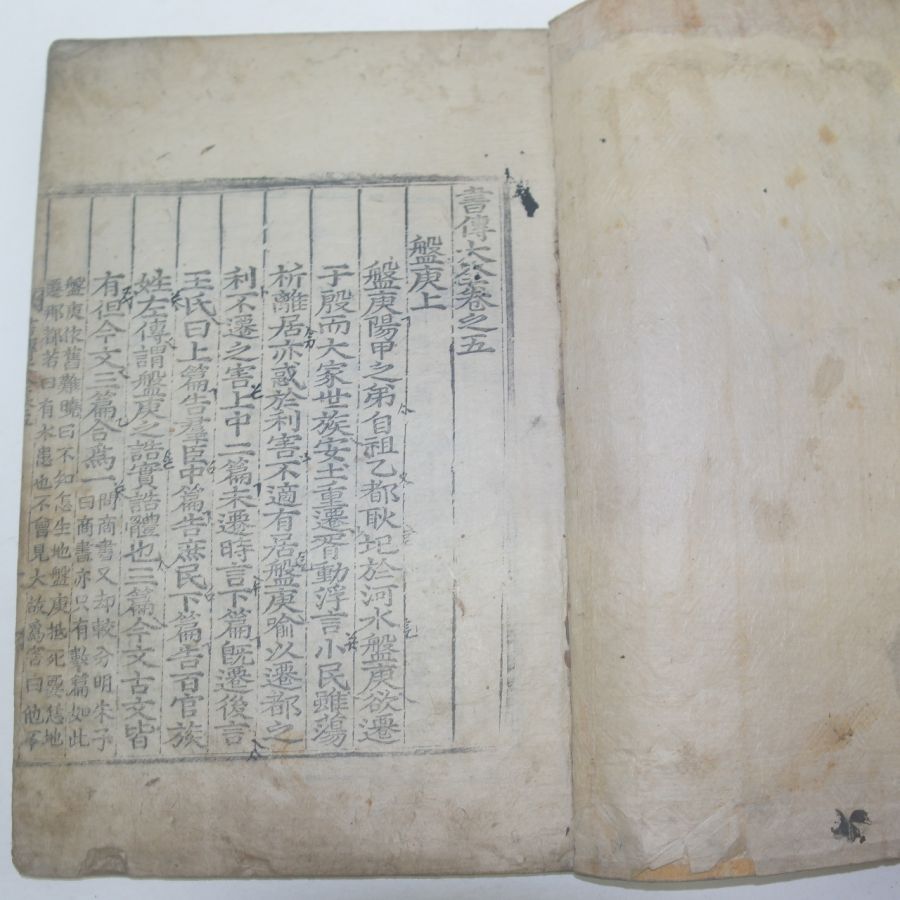 書傳大全卷之五
盤庚上
盤庚陽甲之弟自祖乙都耿圮於河水盤庚欲遷
于殷而大家世族安土重遷胥動浮言小民雖蕩
析離居亦惑於利害不適有居盤庚喻以遷都之
利不遷之害上中二篇未遷時言下篇旣遷後言
王氏曰上篇告羣臣中篇告庶民下篇告百官族
姓左傳謂盤庚之誥實誥體也三篇今文古文皆
有但今文三篇合爲一
問商書又却較分明朱子
曰商書亦只有數篇如此
盤庚依舊難曉曰不知怎生地盤庚抵死要恁地
遷那都若曰有水患也不曾見大故爲害曰他不